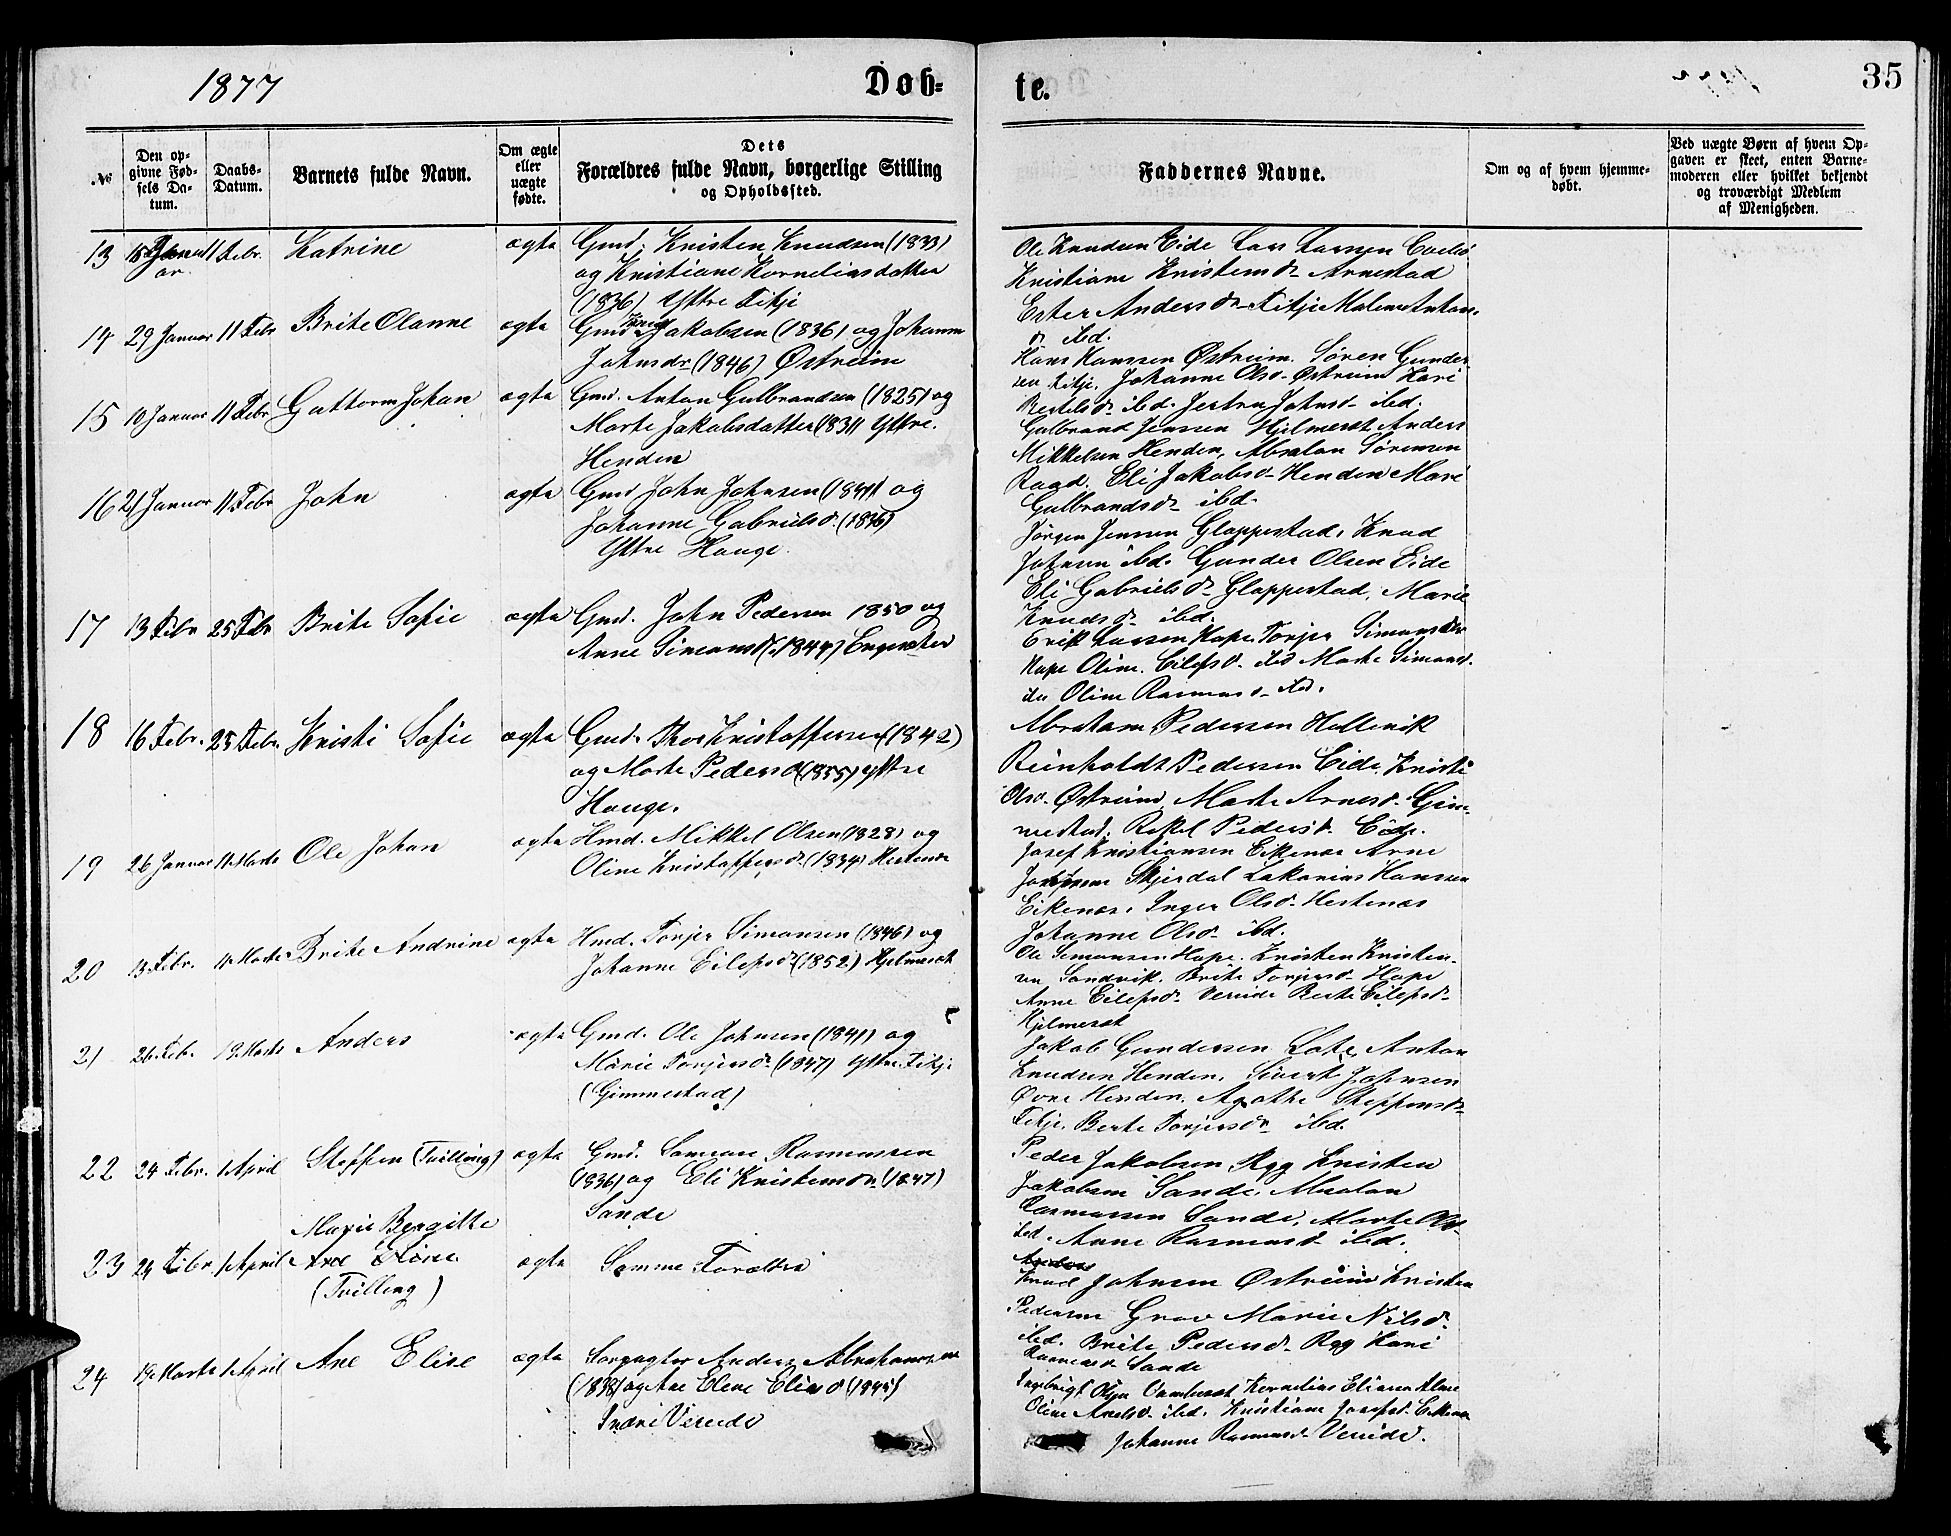 1877
Döb-
te.
35
№
Den op-
givne Fød-
sels Da-
tum.
Daabs-
Datum.
Barnets fulde Navn.
Om ægte
eller
uægte
fødte.
Dets
Forældres fulde Navn, borgerlige Stilling
og Opholdssted.
Faddernes Navne.
Om og af hvem hjemme-
døbt.
Ved uægte Børn af hvem Op-
gaven er skeet, enten Barne-
moderen eller hvilket bekjendt
og troværdigt Medlem
af Menigheden.
13 Januar 11 Febr. Katrine ægte Gmd. Kristen Knudsen (1833)
og Kristiane Korneliusdatter
(1836) Yttre Fitje
Ole Knudsen Eide Lars Larsen
Kristiane Kristensdr Arnestad
Ester Andersdr Fitje Malene Antons-
dr ibd.
14 29 Januar 11 Febr Brite Olanne ægte Gmd Jakobsen (1836) og Johanne
Johnsdr (1846) Østreim
Hans Hanssen Østreim. Søren Gunder-
sen Fitje. Johanne Olsd. Østreim Kari
Bertelsdr ibd. Johnsd. ibd.
15 10 Januar 11 Febr Guttorm Johan ægte Gmd. Anton Gulbrandsen (1825) og
Marte Jakobsdatter (1831) Yttre
Henden
Gulbrand Jenssen Hjelmeset Anders
Mikkelsen Henden, Absalon Sørensen
Raad. Eli Jakobsd. Henden Mari
Gulbrandsdr ibd.
16 21 Januar 11 Febr John ægte Gmd John Johnsen (1841) og
Johanne Gabrielsd. (1836)
Yttre Hauge.
Jørgen Jenssen Gloppestad, Knud
Johnsen ibd. Gunder Olsen Eide
Eli Gabrielsdr Gloppestad, Marie
Knudsdr ibd.
17 13 Febr 25 Febr Brite Sofie ægte Gmd. John Pedersen 1850 og
Anne Simonsdr (1844) Engesæter
Erik Larsen Hope Torjer Simonsen
Hope Oline Eilefsd. ibd Marte Simonsd.
Oline Rasmusd. ibd.
18 16 Febr. 25 Febr. Kristi Sofie ægte Gmd. Peder Kristoffersen (1842)
og Marte Pedersd (1855) Yttre
Hauge.
Abraham Pedersen Hellevik
Reinholdt Pedersen Eide, Kristi
Olsd. Østreim, Marte Arnesd. Gim-
mestad, Rakel Pedersd. Eide.
19 26 Januar 11 Marts Ole Johan ægte Hmd. Mikkel Olsen (1828) og
Oline Kristoffersdr (1834) Hestenæs
Josef Kristiansen Eikenæs Arne
Skjerdal Zakarias Hanssen
Eikenæs, Inger Olsdr Hestenæs
Johanne Olsd. ibd.
20 13 Febr. 11 Marts Brite Andrine ægte Hmd. Torjer Simonsen (1846) og
Johanne Eilefsdr (1852) Hjelmeset
Ole Simonsen Hope. Kristen Kristen-
sen Sandvik. Brite Torjersd. Hope
Anne Eilefsdr Vereide Berte Eilefsdr
Hjelmeset
21 26 Febr. Marts Anders ægte Gmd. Ole Johnsen (1841) og
Marie Torjersdr (1847) Yttre Fitje
(Gimmestad)
Jakob Gundersen Lote, Anton
Knudsen Henden, Sivert Johnsen
Øvre Henden, Agathe Steffensdr
Fitje. Berte Torjersdr ibd.
22 24 Febr. 1 April Steffen (Tvilling) ægte Gmd. Samson Rasmussen
(1836) og Eli Kristensdr (1847)
Sande
Peder Jakobsen Ryg Kristen
Jakobsen Sande, Absalon
Rasmussen Sande, Marte Olsd.
ibd. Anne Rasmusd. ibd.
23 24 Febr. 1 April Marie Bergitte
(Tvilling) ægte Samme Forældre
Knud Johnsen Østreim Kristen
Pedersen Grov Marie Nilsdr
ibd. Brite Pedersdr Ryg Kari
Sande
24 19 Marts 1 April Ane Elise ægte Forpagter Anders Abrahamsen
(1838) og Ane Elene Eliasd (1845)
Indre Vereide
Ingebrigt Olsen Kornelius Eliassen
Oline ibd. Kristiane Josefsd. Eikenæs
Johanne Rasmusd. Vereide.